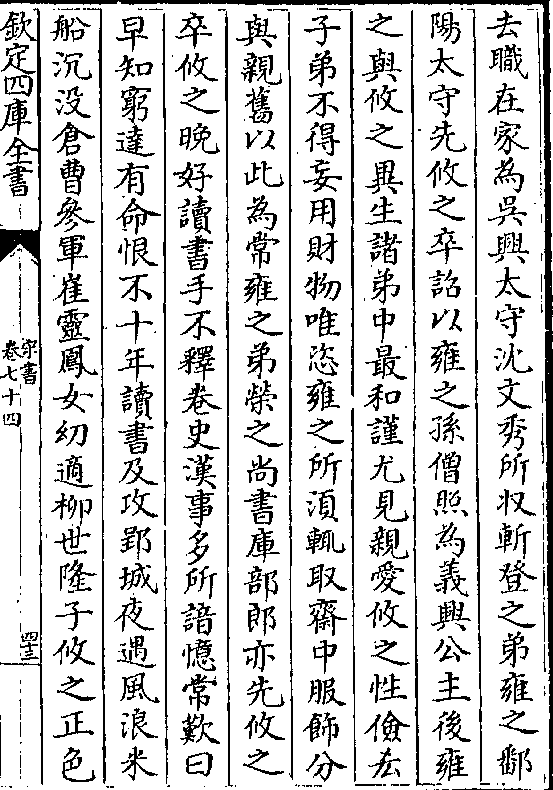 去職在家為吳興太守沈文秀所収斬登之弟雍之鄱
陽太守先攸之卒詔以雍之孫僧照為義興公主後雍
之與攸之異生諸弟中最和謹尤見親愛攸之性儉吝
子弟不得妄用財物唯恣雍之所須輒取齋中服飾分
與親舊以此為常雍之弟榮之尚書庫部郎亦先攸之
卒攸之晩好讀書手不釋卷史漢事多所諳憶常歎曰
早知窮達有命恨不十年讀書及攻郢城夜遇風浪米
船沉没倉曹參軍崔靈鳳女幼適柳世隆子攸之正色
欽定四庫全書
宋書
卷七十四
四十三